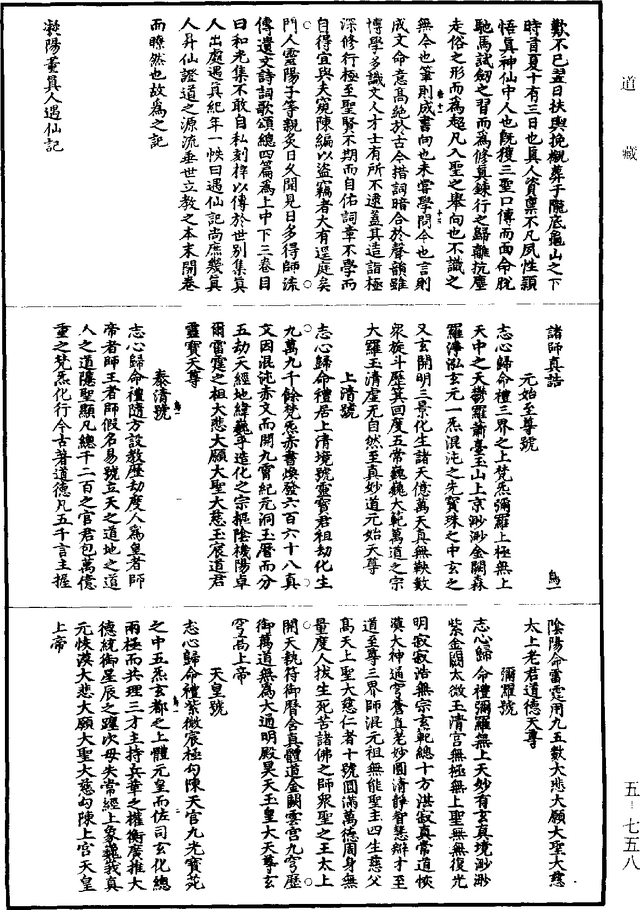 道藏
歎不已翌日扶輿挽襯葬于隴底龜山之下
時首夏十有三日也真人資禀不凡夙性穎
悟真神仙中人也既稷三聖口傳而面命脫
馳馬試劒之習而為修真鍊行之歸離抗塵
走俗之形而為超凡入聖之舉向也不識之
無今也筆則成書向也未嘗學問今也言則
成文命意髙絶於古今措詞暗合於聲韻雖
博學多識文人才士有所不逮蓋其造詣極
深修行極至聖賢不期而自佑詞章不學而
自得宜與夫窺陳編以盜竊者大有逕庭矣
門人靈陽子等親炙日久聞見日多得師流
傳遺文詩詞歌頌總四篇為上中下三卷目
曰和光集不敢自私刻梓以傳於世别集真
人出處遇真紀年一帙曰遇仙記尚庶幾真
人升仙證道之源流垂世立教之本末開卷
而瞭然也故為之記
凝陽董真人遇仙記
諸師真誥　鳥一
元始至尊號
志心歸命禮三界之上梵炁彌羅上極無上
天中之天鬱羅蕭臺玉山上京渺渺金闕森
羅淨泓玄元一炁混沌之先寶珠之中玄之
又玄開明三景化生諸天億萬天真無鞅數
衆旋斗歷箕回度五常巍巍大範萬道之宗
大羅玉清虛无自然至真妙道元始天尊
上清號
志心歸命禮居上清境號靈寶君祖劫化生
九萬九千餘梵炁赤書煥發六百六十八真
文因混沌赤文而開九霄紀元洞玉曆而分
五劫天經地緯巍乎造化之宗樞陰機陽卓
爾雷霆之祖大悲大願大聖大慈玉宸道君
靈寶天尊
泰清號
志心歸命禮隨方設教歷劫度人為皇者師
帝者師王者師假名易號立天之道地之道
人之道隱聖顯凡總千二百之官君包萬億
重之梵炁化行今古著道德凡五千言主握
陰陽命雷霆用九五數大悲大願大聖大慈
太上老君道德天尊
彌羅號
志心歸命禮彌羅無上天妙有玄真境渺渺
紫金闕太微玉清宫無極無上聖無無復光
明寂寂浩無宗玄範總十方湛寂真常道恢
漠大神通穹蒼真老妙圓清静智慧辯才至
道至尊三界師混元祖無能聖主四生慈父
髙天上聖大慈仁者十號圓滿萬德周身無
量度人拔生死苦諸佛之師衆聖之王太上
開天執符御曆含真體道金闕雲宫九穹歷
御萬道無為大通明殿昊天玉皇大天尊玄
穹髙上帝
天皇號
志心歸命禮紫微宸極勾陳天宫九光寶苑
之中五炁玄都之上體元皇而佐司玄化總
兩極而共理三才主持兵革之權衡廣推大
德統御星辰之躔次毋失常經上象巍我真
元恢漠大悲大願大聖大慈勾陳上宫天皇
上帝
五—七五八